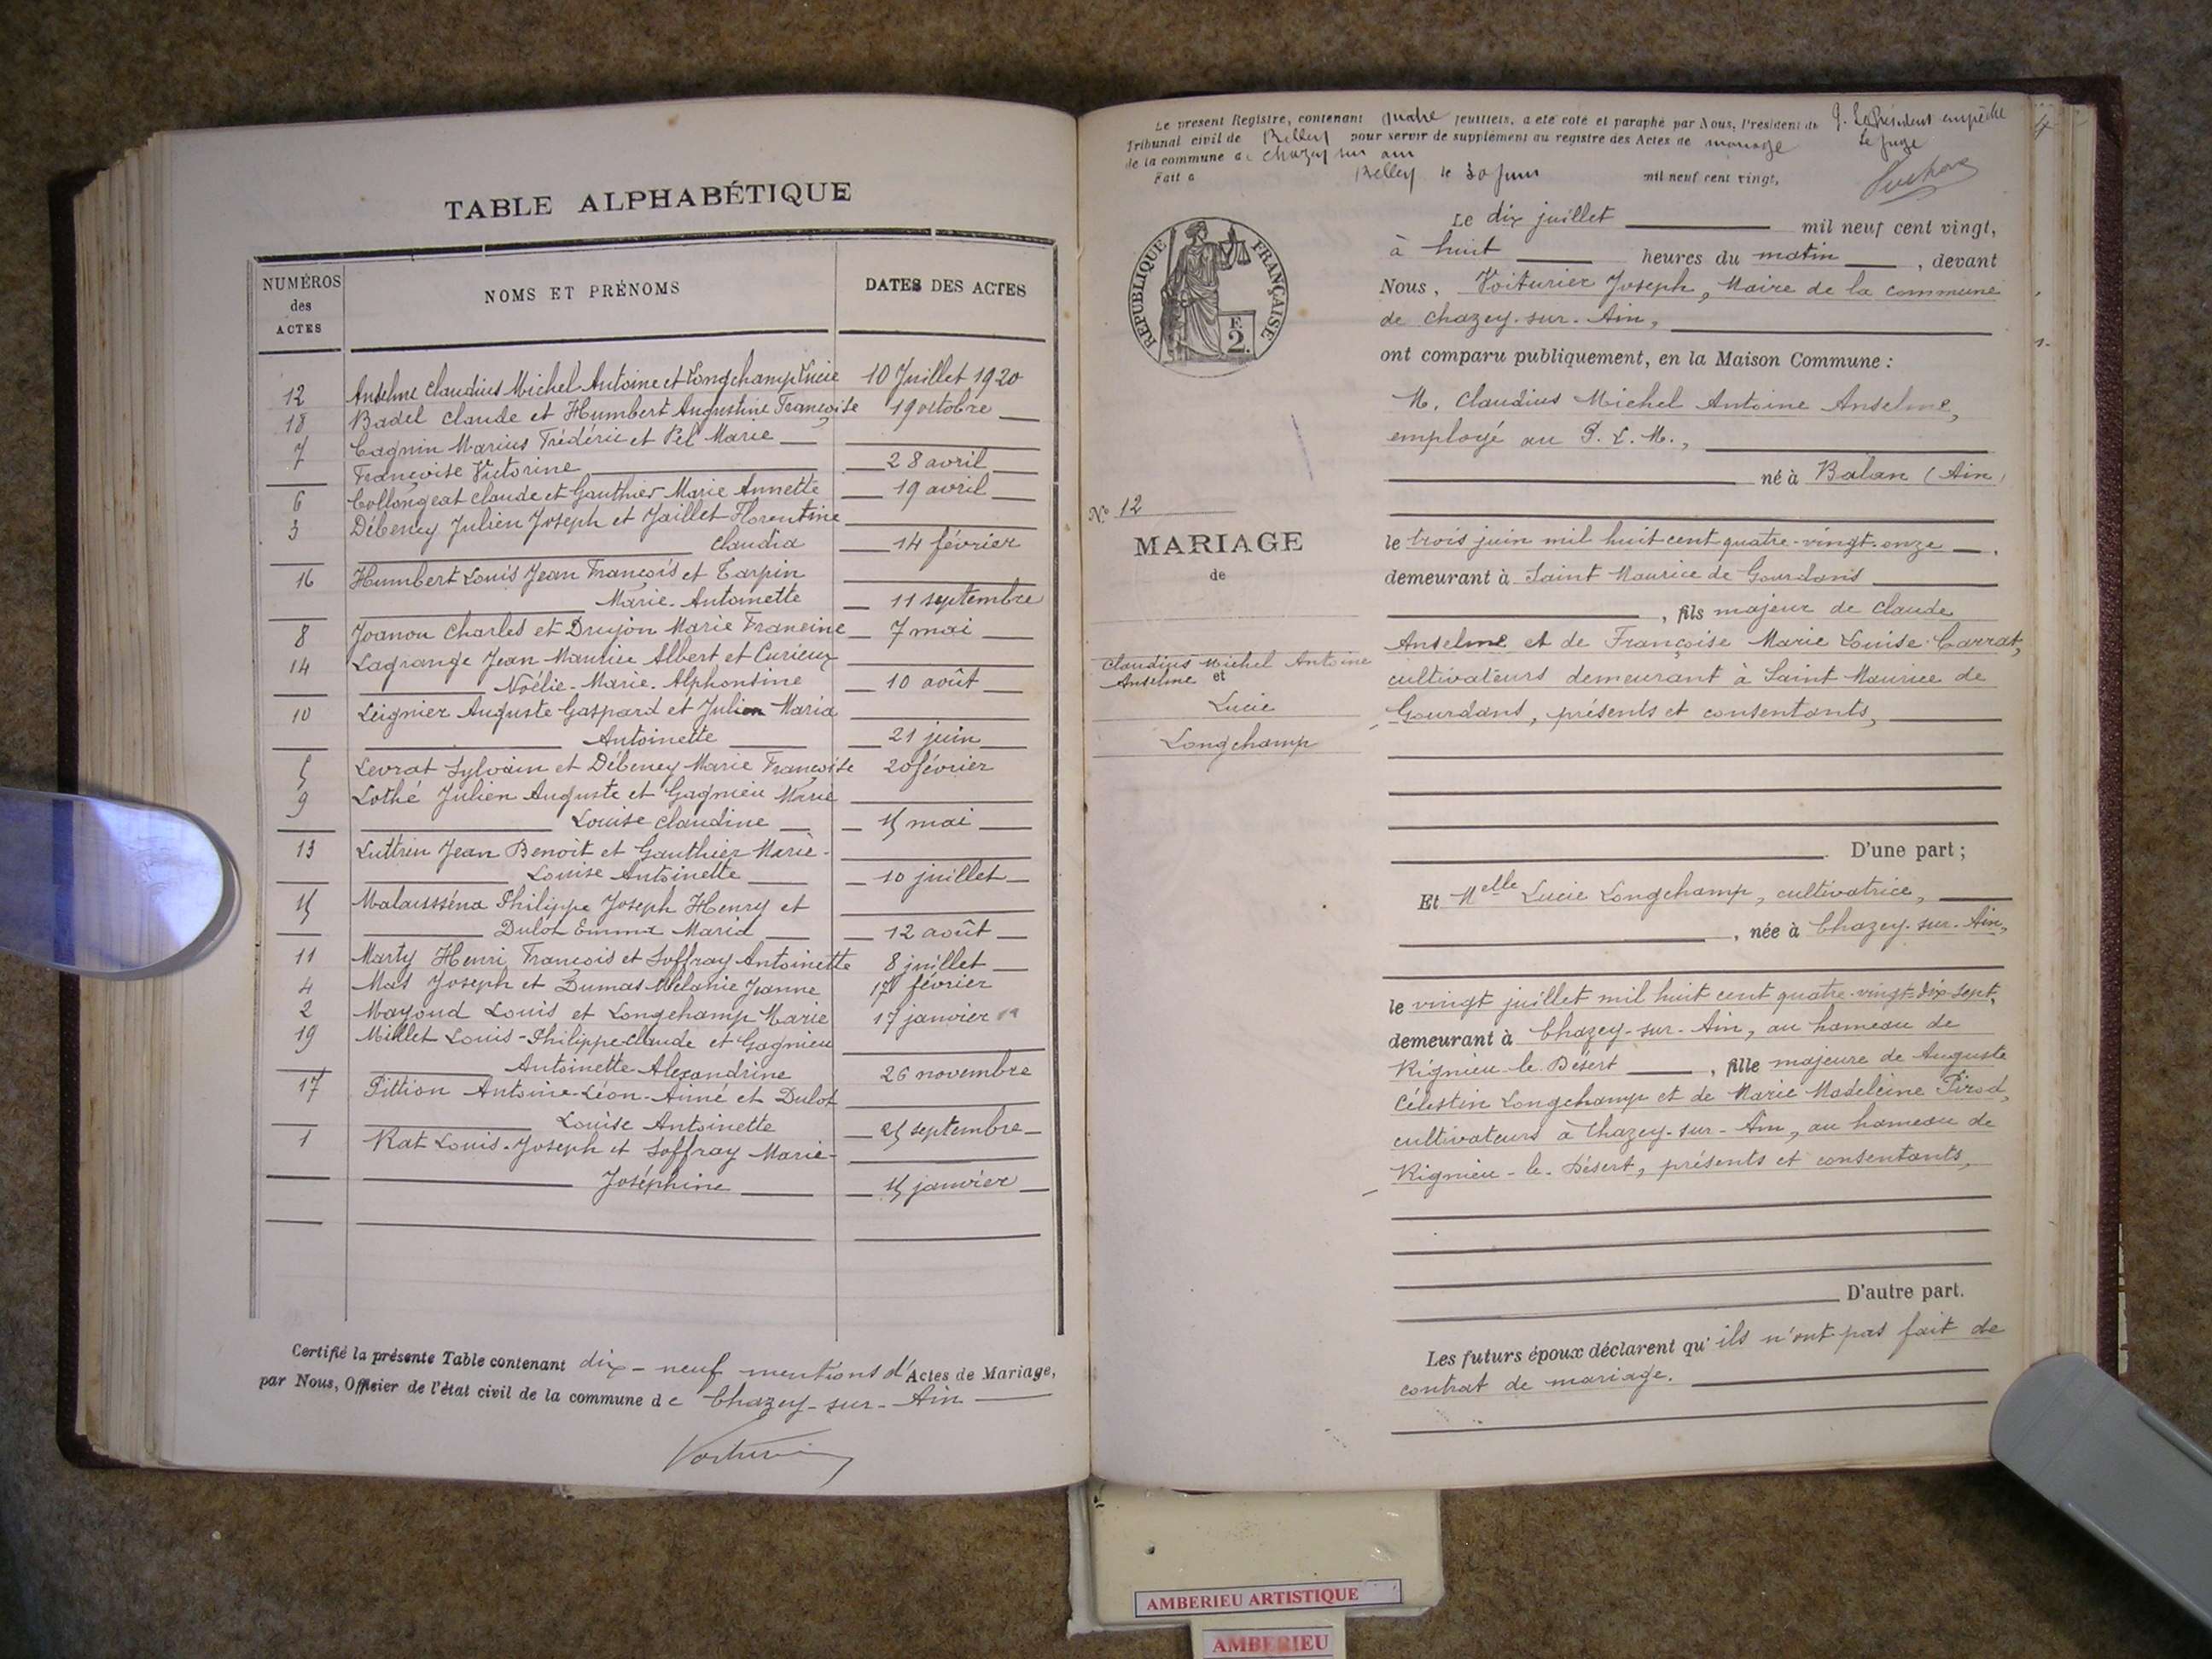 TABLE ALPHABÉTIQUE
NUMÉROS des ACTES
NOMS ET PRÉNOMS
DATES DES ACTES
12 Anselme Claudius Michel Antoine et Longchamp Lucie 10 Juillet 1920
18 Badel Claude et Humbert Augustine Françoise 19 octobre
7 Cagnin Marius Frédéric et Pel Marie
Françoise Victorine 28 avril
6 Collongeat Claude et Gauthier Marie Annette 19 avril
3 Débeney Julien Joseph et Jaillet Florentine
Claudia 14 février
16 Humbert Louis Jean François et Tarpin
Marie-Antoinette 11 septembre
8 Joanon Charles et Drujon Marie Francine 7 mai
14 Lagrange Jean-Maurice Albert et Curieux
Noélie-Marie-Alphonsine 10 août
10 Leignier Auguste Gaspard et Julien Maria
Antoinette 21 juin
5 Levrat Sylvain et Débeney Marie Françoise 20 février
9 Lothé Julien Auguste et Gagnieu Marie
Louise Claudine 15 mai
13 Luttrin Jean Benoit et Gauthier Marie-
Louise Antoinette 10 juillet
15 Malausséna Philippe Joseph Henry et
Dulot Emma Maria 12 août
11 Marty Henri François et Soffray Antoinette 8 juillet
4 Mas Joseph et Dumas Mélanie Jeanne 17 février
2 Mayoud Louis et Longchamp Marie 17 janvier
19 Millet Louis-Philippe-Claude et Gagnieu
Antoinette Alexandrine 26 novembre
17 Pittion Antoine-Léon-Aimé et Dulot
Louise Antoinette 25 septembre
1 Rat Louis-Joseph et Soffray Marie-
Joséphine 15 janvier
Certifié la présente Table contenant dix-neuf mentions d'Actes de Mariage,
par Nous, Officier de l'état civil de la commune de Chazey-sur-Ain
Le présent Registre, contenant quatre feuillets, a été coté et paraphé par Nous, Président du
Tribunal civil de Belley pour servir de supplément au registre des Actes de mariage
de la commune de Chazey sur Ain
Fait à Belley le 30 Juin mil neuf cent vingt,
P. Le Président empêché
Le Juge
RÉPUBLIQUE FRANÇAISE
F.
2.
N° 12
MARIAGE
de
Claudius Michel Antoine
Anselme et
Lucie
Longchamp
Le dix juillet mil neuf cent vingt,
à huit heures du matin, devant
Nous, Voiturier Joseph, Maire de la commune
de Chazey-sur-Ain,
ont comparu publiquement, en la Maison Commune :
M. Claudius Michel Antoine Anselme,
employé au P. L. M.,
né à Balan (Ain)
le trois juin mil huit cent quatre-vingt-onze
demeurant à Saint Maurice de Gourdans
, fils majeur de Claude
Anselme et de Françoise Marie Louise Carrat,
cultivateurs demeurant à Saint Maurice de
Gourdans, présents et consentants,
D'une part ;
Et Melle Lucie Longchamp, cultivatrice,
, née à Chazey-sur-Ain,
le vingt juillet mil huit cent quatre-vingt-dix-sept,
demeurant à Chazey-sur-Ain, au hameau de
Rignieu-le-Désert, fille majeure de Auguste
Célestin Longchamp et de Marie Madeleine Pirod,
cultivateurs à Chazey-sur-Ain, au hameau de
Rignieu-le-Désert, présents et consentants,
D'autre part.
Les futurs époux déclarent qu'ils n'ont pas fait de
contrat de mariage.
AMBERIEU ARTISTIQUE
AMBERIEU